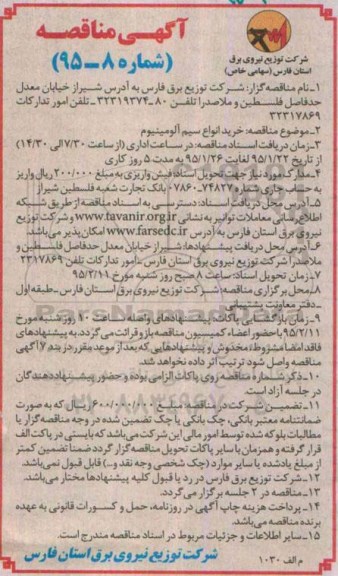 آگهی مناقصه
(شماره ۸-۹۵)
شرکت توزیع نیروی برق
استان فارس (سهامی خاص)
۱-نام مناقصه گزار: شرکت توزیع برق فارس به آدرس شیراز خیابان معدل
حدفاصل فلسطین و ملاصدرا تلفن ۸۰-۳۲۳۱۹۳۷۴-تلفن امور تدارکات
۳۲۳۱۷۸۶۹
۲-موضوع مناقصه: خرید انواع سیم آلومینیوم
۳-زمان دریافت اسناد مناقصه: در ساعت اداری (از ساعت ۷/۳۰ الی ۱۴/۳۰)
از تاریخ ۹۵/۱/۲۲ لغایت ۹۵/۱/۲۶ به مدت ۵ روز کاری
۴-مدارک مورد نیاز جهت تحویل اسناد: فیش واریزی به مبلغ ۲۰۰/۰۰۰ ریال واریز
به حساب جاری شماره ۰۷۸۶۰۷۴۸۲۷ بانک تجارت شعبه فلسطین شیراز
۵-آدرس محل دریافت اسناد: دسترسی به اسناد مناقصه از طریق شبکه
اطلاع رسانی معاملات توانیر به نشانی www.tavanir.org.ir و شرکت توزیع
نیروی برق استان فارس به آدرس www.farsedc.ir امکان پذیر می باشد.
۶-آدرس محل دریافت پیشنهادها: شیراز خیابان معدل حدفاصل فلسطین و
ملاصدرا شرکت توزیع نیروی برق استان فارس-امور تدارکات تلفن ۲۳۱۷۸۶۹
۷-زمان تحویل اسناد: ساعت ۸ صبح روز شنبه مورخ ۹۵/۲/۱۱
۸-محل برگزاری مناقصه: شرکت توزیع نیروی برق استان فارس-طبقه اول
-دفتر معاونت پشتیبانی
۹-زمان بازگشایی پاکات: پیشنهادهای واصله ساعت ۱۰ روز شنبه مورخ
۹۵/۲/۱۱ با حضور اعضاء کمیسیون مناقصه باز و قرائت می گردد. به پیشنهادهای
فاقد امضا مشروط، مخدوش و پیشنهادهایی که بعد از موعد مقرر در بند ۷ آگهی
مناقصه واصل شود ترتیب اثر داده نخواهد شد.
۱۰-ذکر شماره مناقصه روی پاکات الزامی بوده و حضور پیشنهاددهندگان
در جلسه آزاد است.
۱۱-تضمین شرکت در مناقصه مبلغ ۶۰۰/۰۰۰/۰۰۰ ریال که به صورت
ضمانتنامه معتبر بانکی، چک بانکی یا چک تضمین شده در وجه مناقصه گزار یا
مطالبات بلوکه شده توسط امور مالی این شرکت می باشد که بایستی در پاکت الف
قرار گرفته و همزمان با سایر پاکات تحویل مناقصه گزار گردد ضمنا تضمین کمتر
از مبلغ یادشده یا سایر موارد (چک شخصی وجه نقد و...) قابل قبول نمی باشد.
۱۲-شرکت توزیع برق فارس در رد یا قبول کلیه پیشنهادها مختار می باشد.
۱۳-مناقصه در ۲ جلسه برگزار می گردد.
۱۴-پرداخت هزینه چاپ آگهی در روزنامه، حمل و کسورات قانونی به عهده
برنده مناقصه می باشد.
۱۵-سایر اطلاعات و جزئیات مربوط در اسناد مناقصه مندرج است.
م الف ۱۰۳۰
شرکت توزیع نیروی برق استان فارس